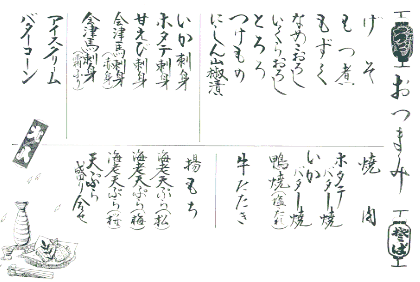 おつまみ
げそ
もつ煮
もずく
なめこおろし
いくらおろし
とろろ
つけもの
にしん山椒漬
いか刺身
ホタテ刺身
甘えび刺身
会津馬刺身
（赤身）
会津馬刺身
アイスクリーム
バターコーン
焼肉
ホタテバター焼
いかバター焼
鴨焼（塩・たれ）
牛たたき
揚もち
海老天ぷら（松）
海老天ぷら（梅）
海老天ぷら（桜）
天ぷら盛り合せ